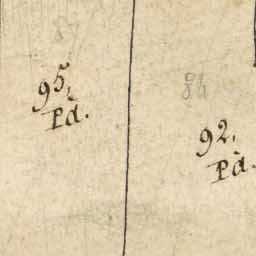 87
95.
Pà.
86
92.
Pà.